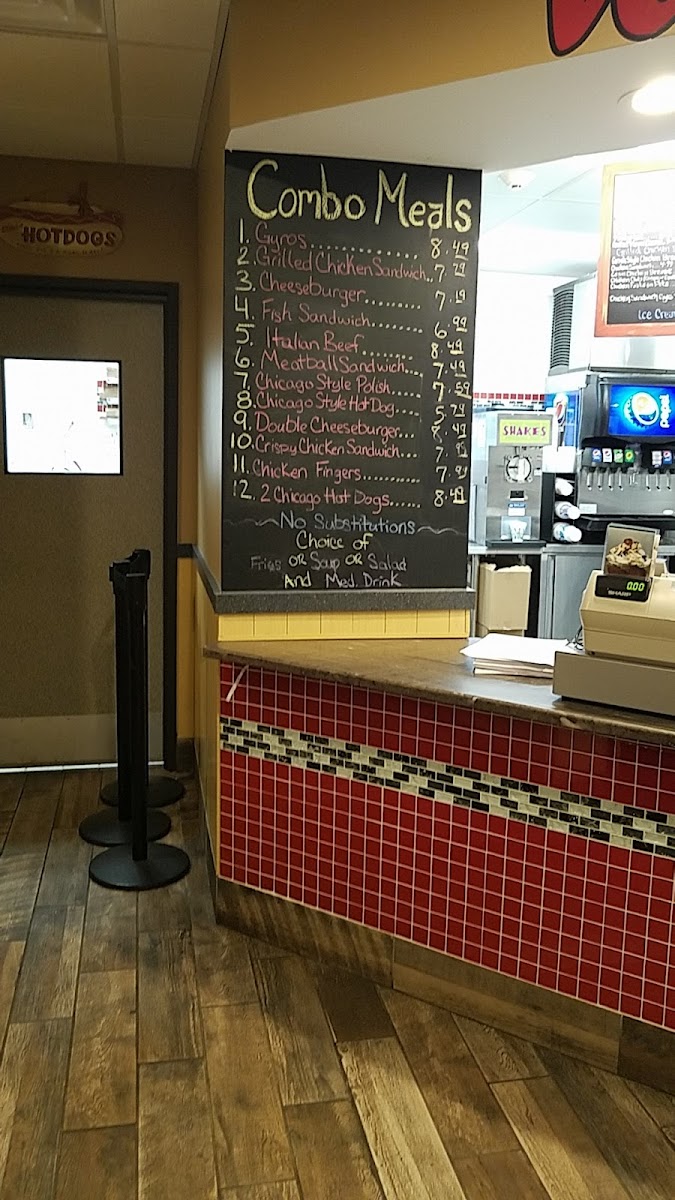 Combo Meals
1. Gyros.............. 8.49
2. Grilled Chicken Sandwich.. 7.79
3. Cheeseburger......... 7.19
4. Fish Sandwich........ 6.99
5. Italian Beef........ 8.49
6. Meatball Sandwich... 7.49
7. Chicago Style Polish..... 7.59
8. Chicago Style Hot Dog.... 5.79
9. Double Cheeseburger... .49
10. Crispy Chicken Sandwich... 7.
11. Chicken Fingers........... 7.99
12. 2 Chicago Hot Dogs...... 8.49
No Substitutions
Choice of
Fries OR Soup OR Salad
And Med. Drink
HOTDOGS
Ice Cream
SHAKES
pepsi
0.00
SHARP